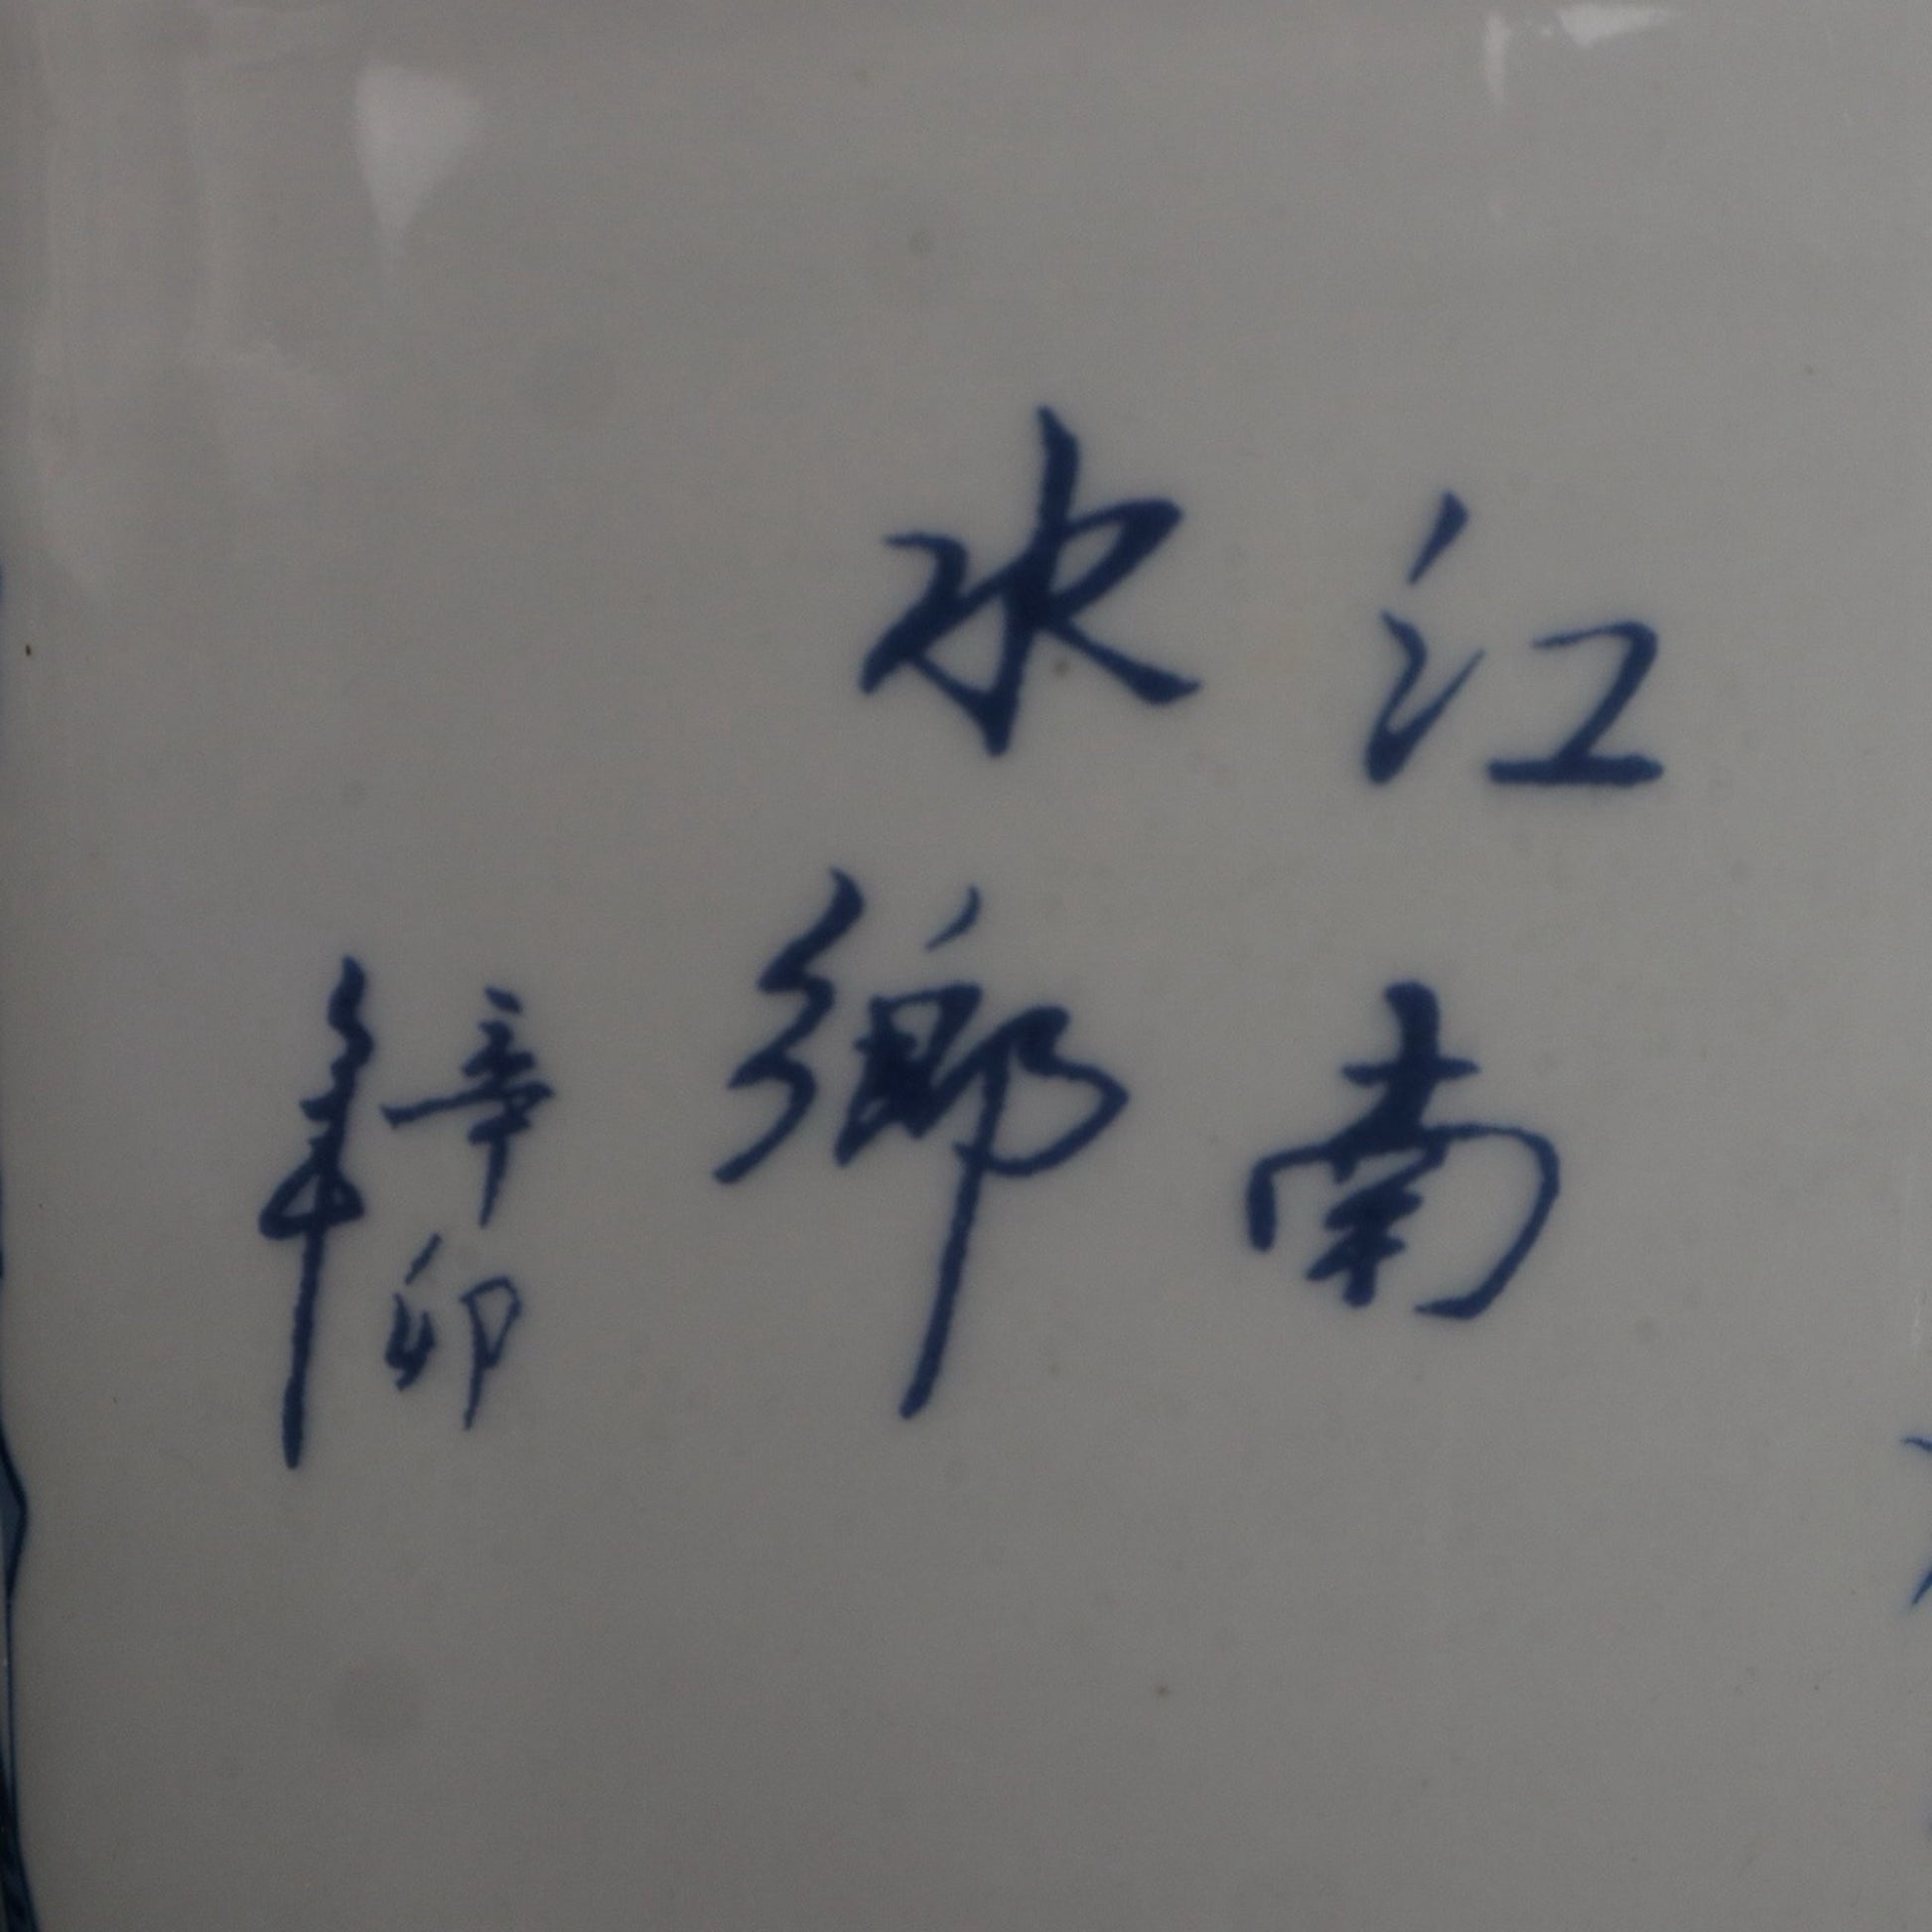 江南
水鄉
辛卯
年